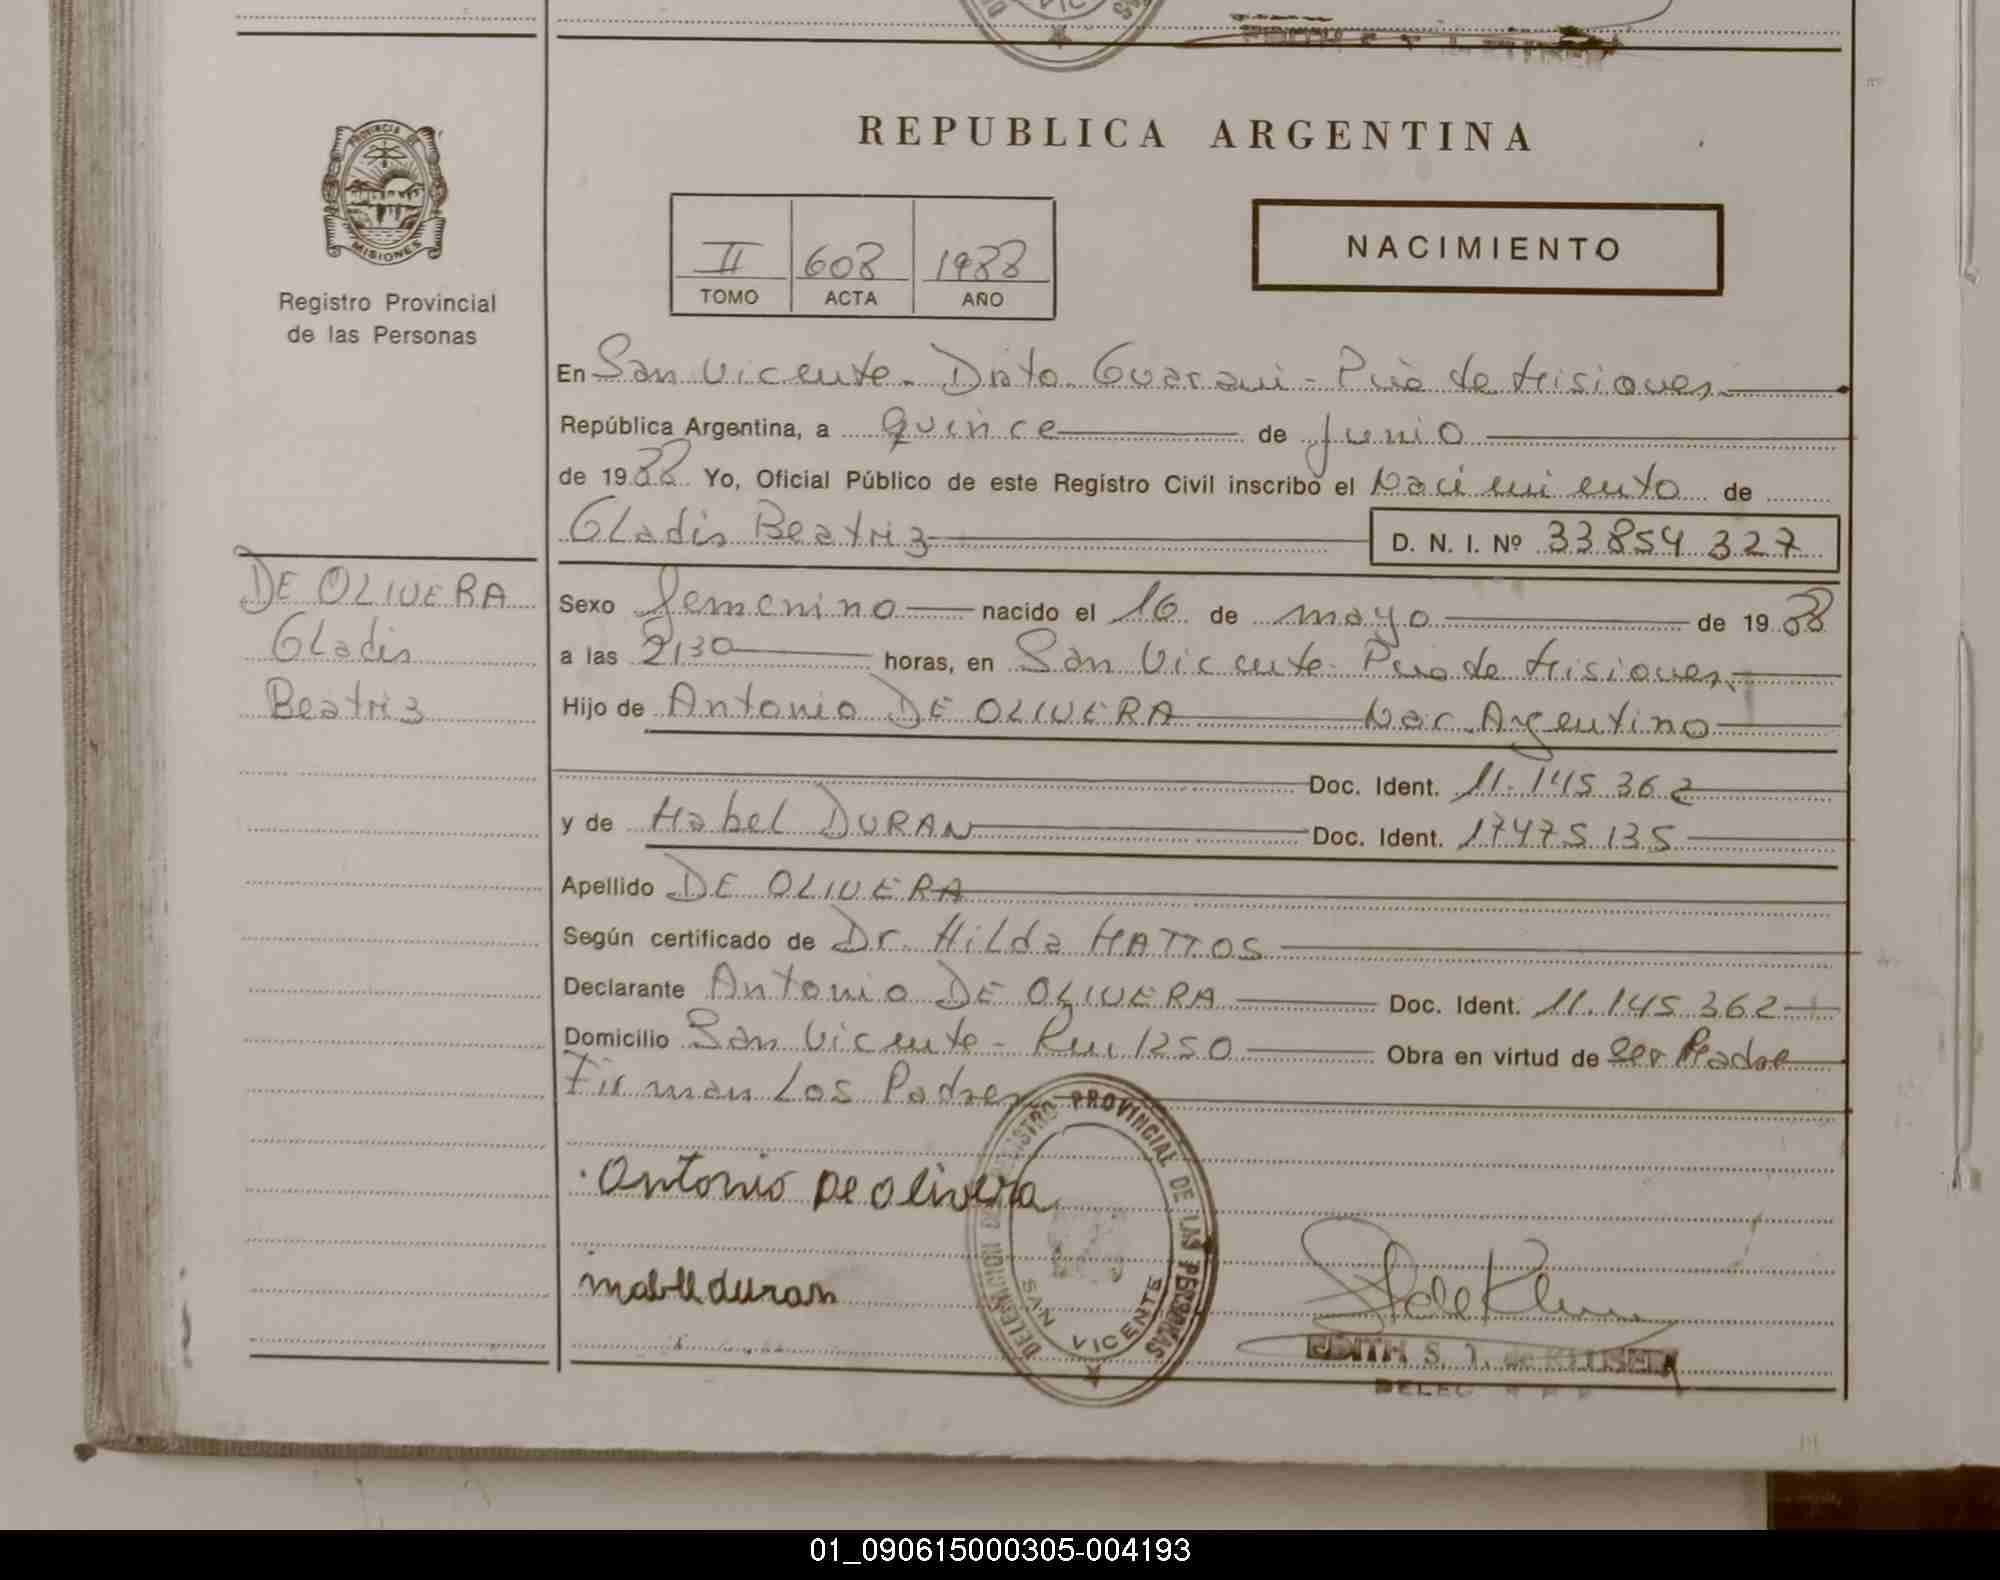 REPUBLICA ARGENTINA
PROVINCIA DE
MISIONES
Registro Provincial
de las Personas
II 608 1988
TOMO ACTA AÑO
NACIMIENTO
En San Vicente - Dpto. Guarani - Pcia de Misiones
República Argentina, a quince de Junio
de 1988 Yo, Oficial Público de este Registro Civil inscribo el Nacimiento de
Gladis Beatriz D. N. I. Nº 33854327
DE OLIVERA
Gladis
Beatriz
Sexo femenino nacido el 16 de mayo de 1988
a las 2,30 horas, en San Vicente - Pcia de Misiones
Hijo de Antonio DE OLIVERA Nac. Argentino
Doc. Ident. 11.145.362
y de Mabel DURAN Doc. Ident. 17475135
Apellido DE OLIVERA
Según certificado de Dr. Hilda MATTOS
Declarante Antonio DE OLIVERA Doc. Ident. 11.145.362
Domicilio San Vicente - Km 1250 Obra en virtud de ser Padre
Firman Los Padres
Antonio De olivera
mabel duran
REGISTRO PROVINCIAL DE LAS PERSONAS
SAN VICENTE
EDITH S. T. de
01_090615000305-004193